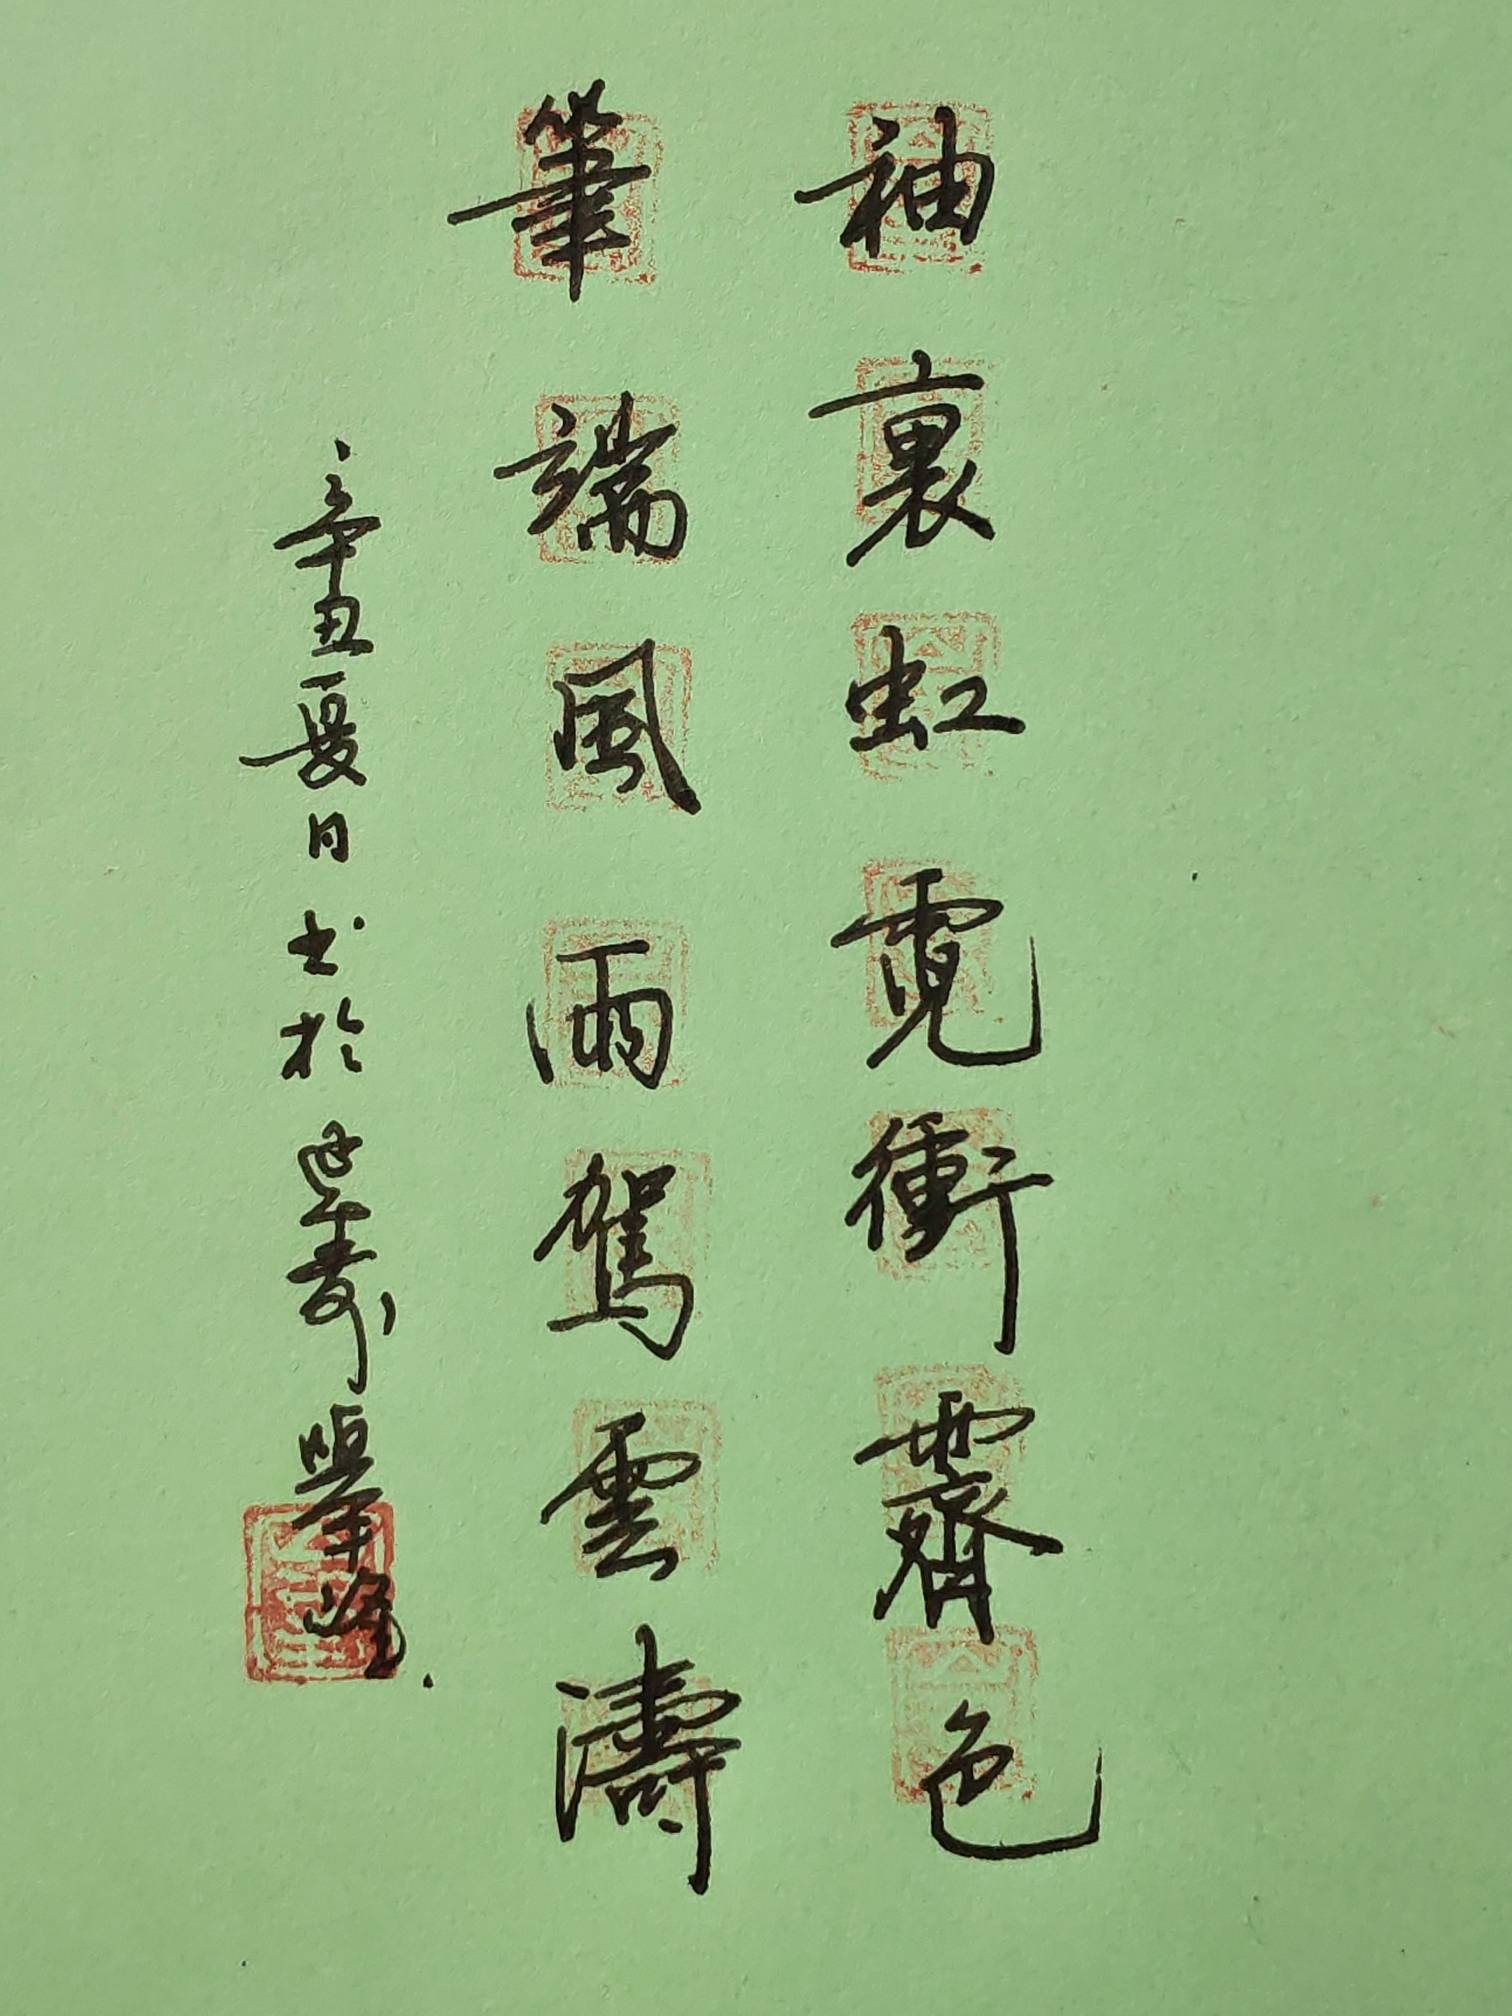 袖裏虹霓衝霽色
筆端風雨駕雲濤
辛丑夏日书於